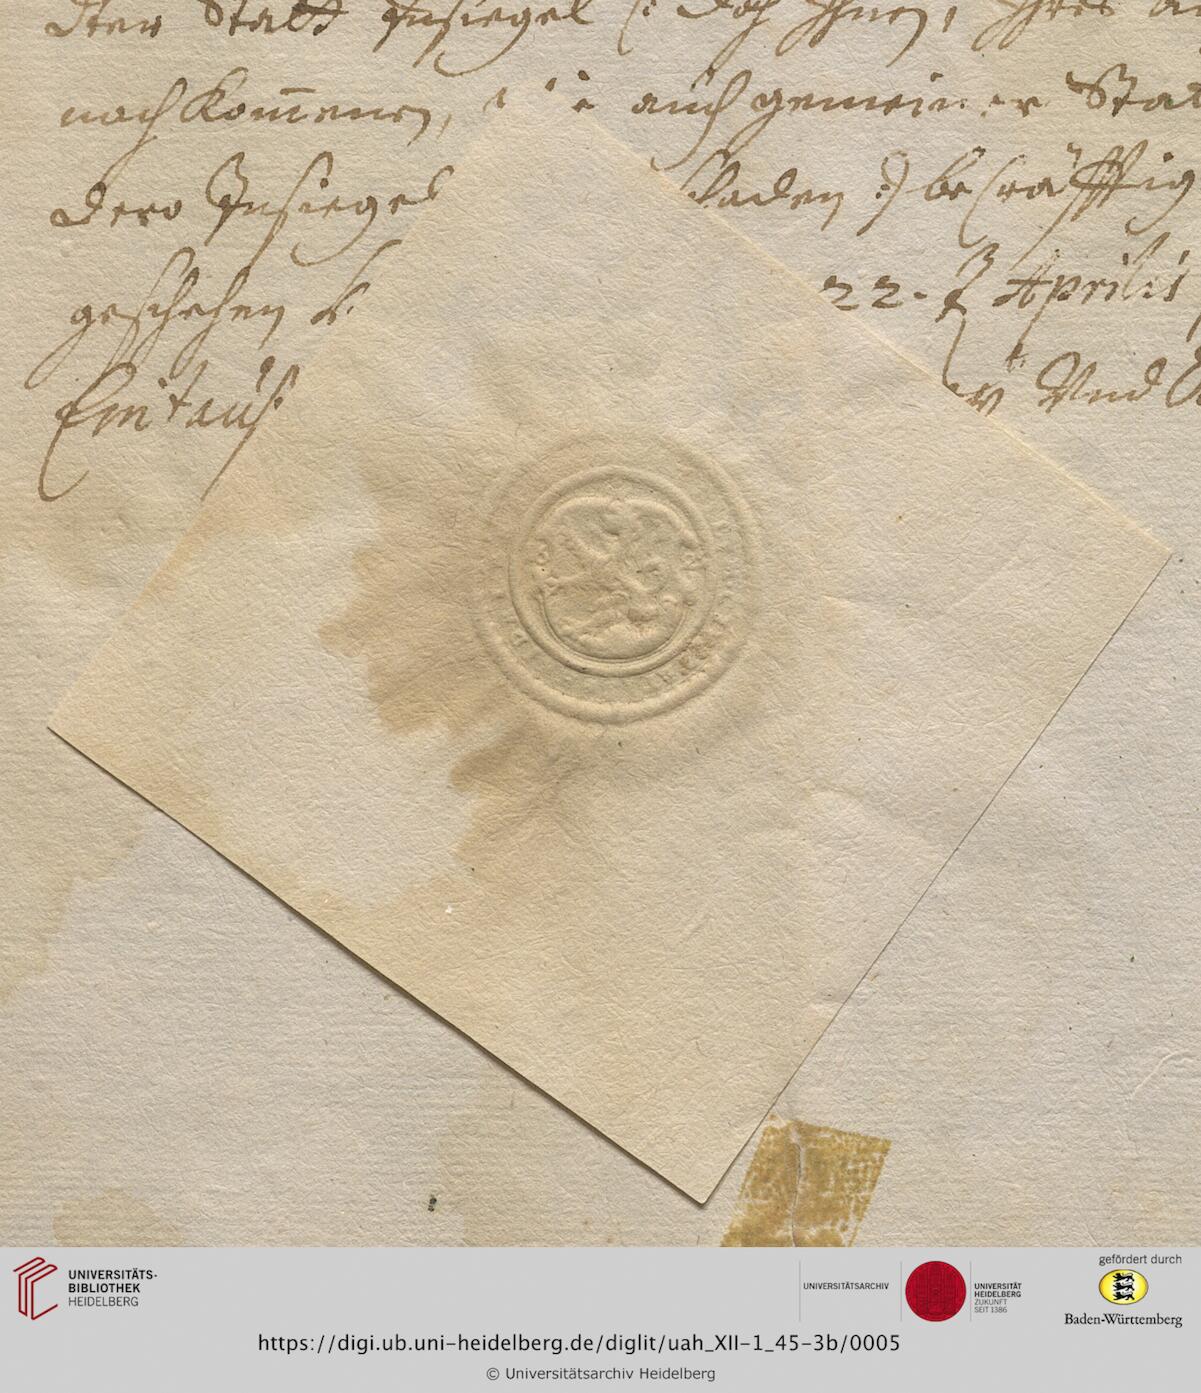 der Statt Insiegel (: doch Ihnen, Ihren
nachkom̄enen, auch gemeiner Stat
dero Insiegel schaden :) becräfftig
geschehen 22. Aprilis
Eintauß Und
UNIVERSITÄTS-
BIBLIOTHEK
HEIDELBERG
UNIVERSITÄTSARCHIV
UNIVERSITÄT
HEIDELBERG
ZUKUNFT
SEIT 1386
gefördert durch
Baden-Württemberg
https://digi.ub.uni-heidelberg.de/diglit/uah_XII-1_45-3b/0005
© Universitätsarchiv Heidelberg